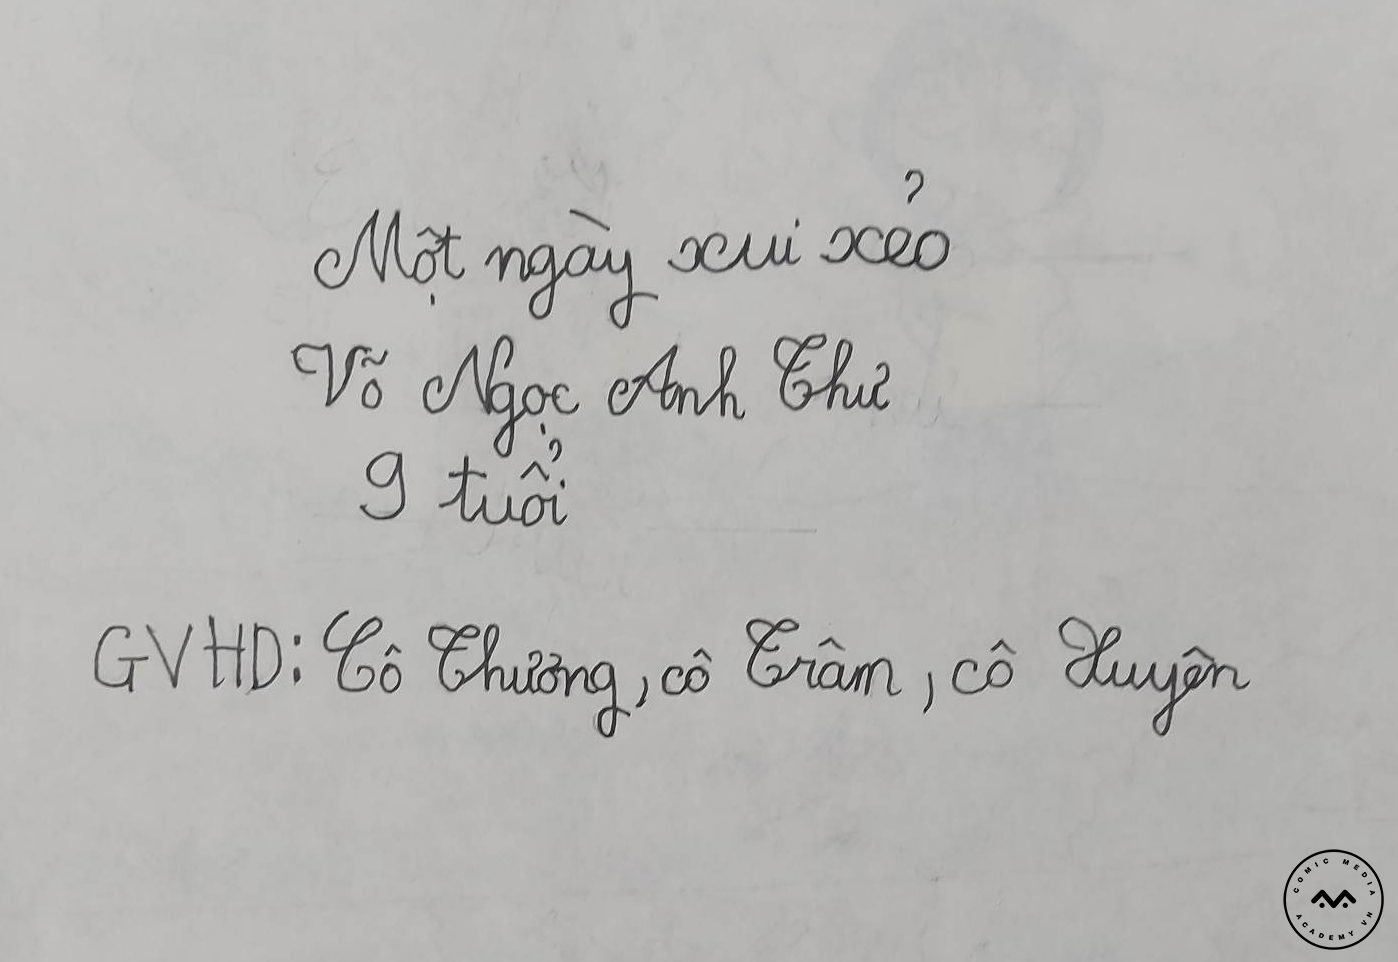 Một ngày xui xẻo
Võ Ngọc Anh Thư
9 tuổi
GVHD: Cô Thương, cô Trâm, cô Xuyên
COMIC MEDIA
ACADEMY VN